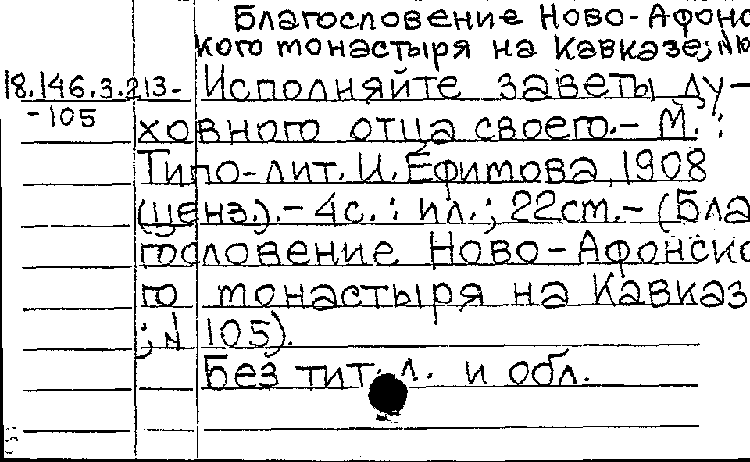 Благословение Ново-Афонс
кого монастыря на Кавказе; №
18.146.3.213- Исполняйте заветы ду-
-105 ховного отца своего.- М. :
Типо-лит. И. Ефимова, 1908
(ценз.).- 4с. : ил.; 22см.- (Бла
гословение Ново-Афонско
го монастыря на Кавказ
; № 105).
Без тит. л. и обл.